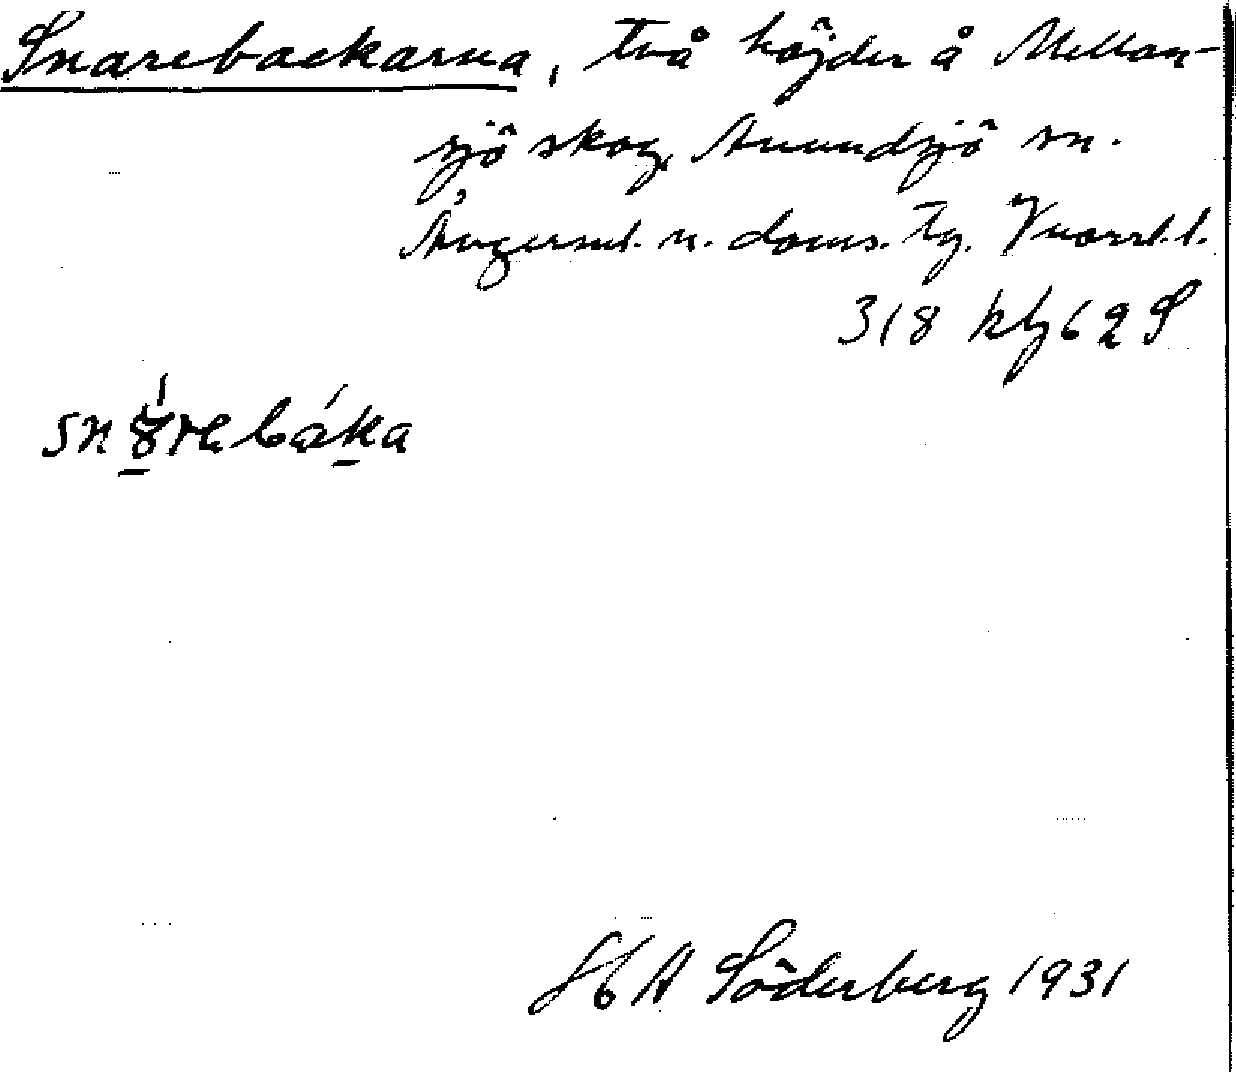 Snarebackarna, två höjder å Mellan-
sjö skog, Anundsjö sn.
Ångerml. n. doms. tg. Vnorrl. l.
318 kbg 62 S
H A Söderberg 1931